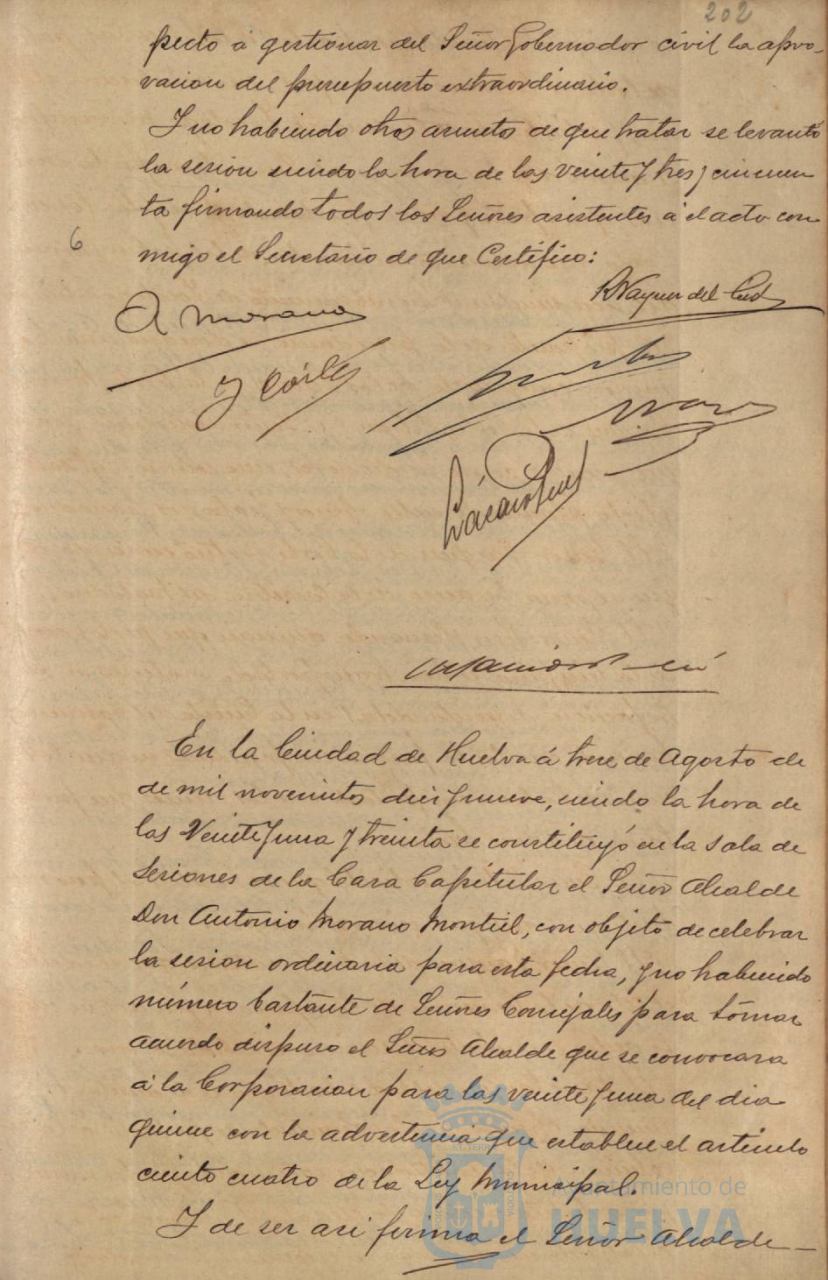 202
pecto á gestionar del Señor Gobernador civil la apro-
vacion del presupuesto extraordinario.
Y no habiendo otros asuntos de que tratar se levantó
la sesion siendo la hora de las veinte y tres y cincuen
ta firmando todos los Señores asistentes á el acto con
6
migo el Secretario de que Certifico:
A Morano
En la Ciudad de Huelva á trece de Agosto de
de mil novecientos diez y nueve, siendo la hora de
las Veinte y una y treinta se constituyó en la sala de
Sesiones de la Casa Capitular el Señor Alcalde
Don Antonio Morano Montiel, con objeto de celebrar
la sesion ordinaria para esta fecha, y no habiendo
número bastante de Señores Concejales para tomar
acuerdo dispuso el Señor Alcalde que se convocara
á la Corporacion para las veinte y una del dia
quince con la advertencia que establece el articulo
ciento cuatro de la Ley Municipal.
Ayuntamiento de
HUELVA
Y de ser asi firma el Señor Alcalde